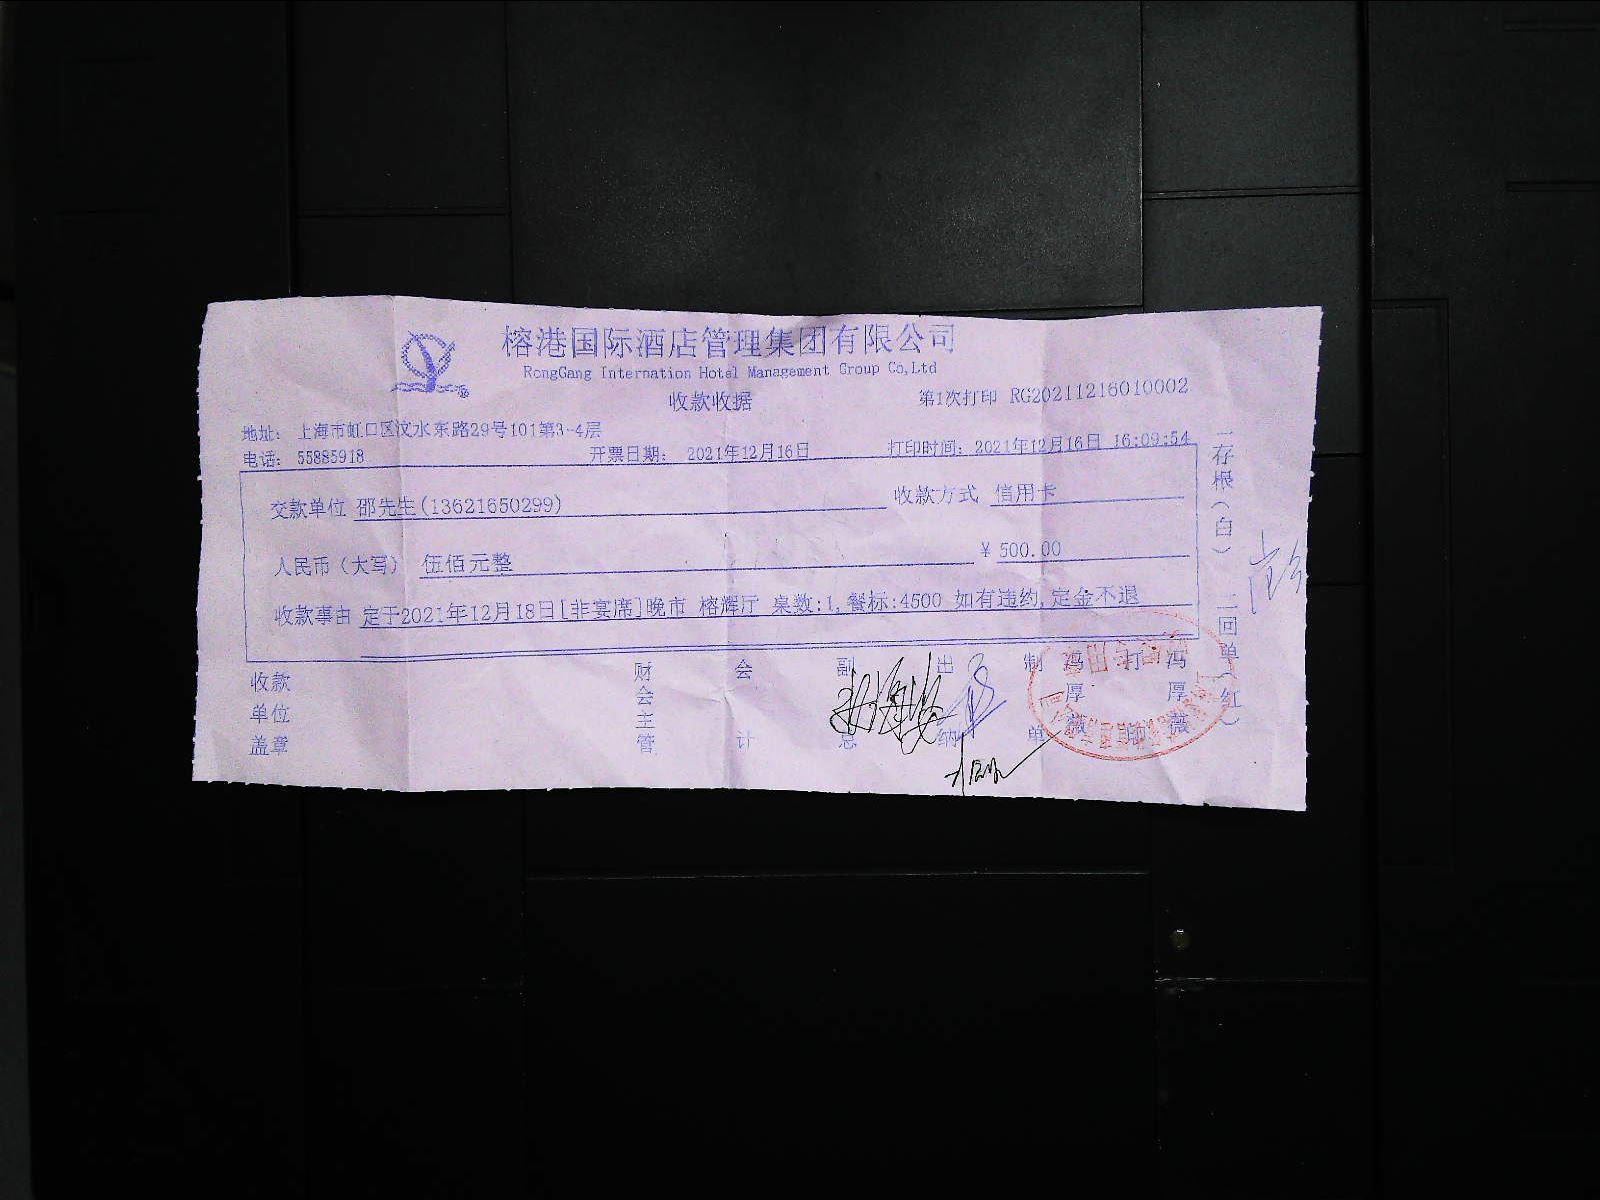 榕港国际酒店管理集团有限公司
RongGang Internation Hotel Management Group Co,Ltd
收款收据
第1次打印 RG20211216010002
地址： 上海市虹口区汶水东路29号101第3-4层
电话： 55885918
开票日期： 2021年12月16日
打印时间：2021年12月16日 16:09:54
交款单位 邵先生(13621650299)
收款方式 信用卡
人民币（大写） 伍佰元整
¥ 500.00
收款事由 定于2021年12月18日[非宴席]晚市 榕辉厅 桌数:1,餐标:4500 如有违约,定金不退
收款单位盖章
财会主管
会计
副总
出纳
制单
冯厚薇
打印
冯厚薇
一存根（白） 二回单（红）